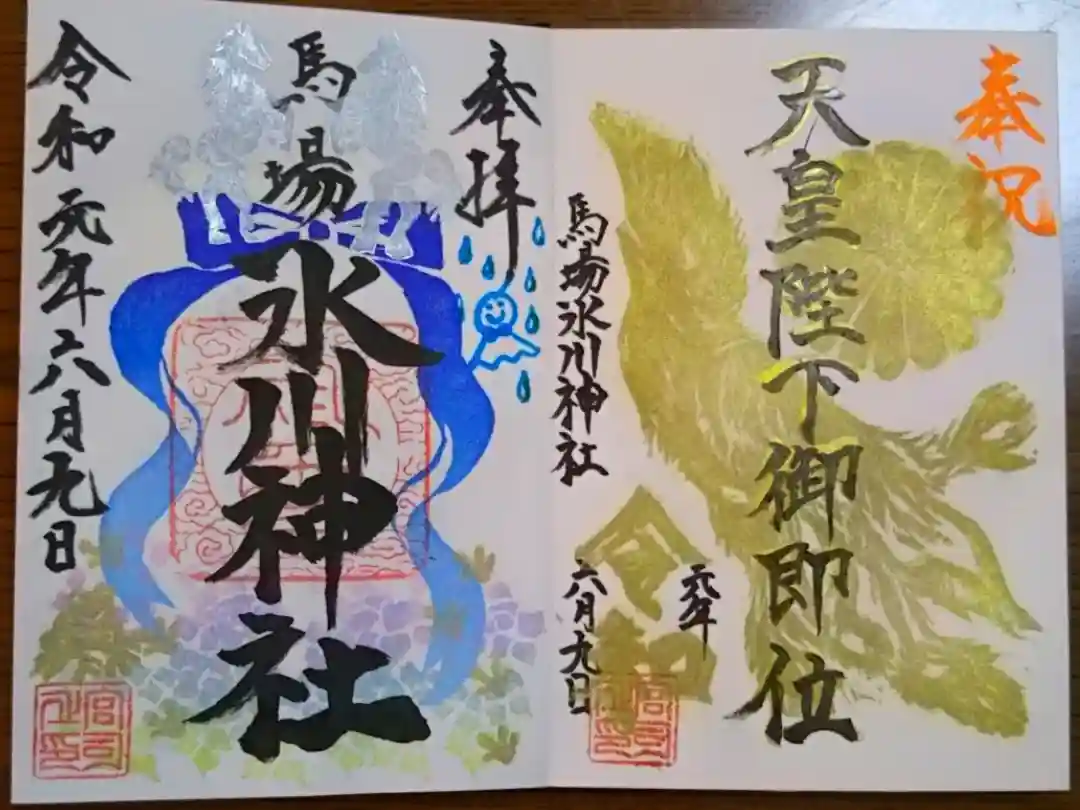 奉祝
天皇陛下御即位
馬場氷川神社
令和
元年
六月九日
宮司之印
奉拝
馬場
氷川神社
令和元年六月九日
宮司之印